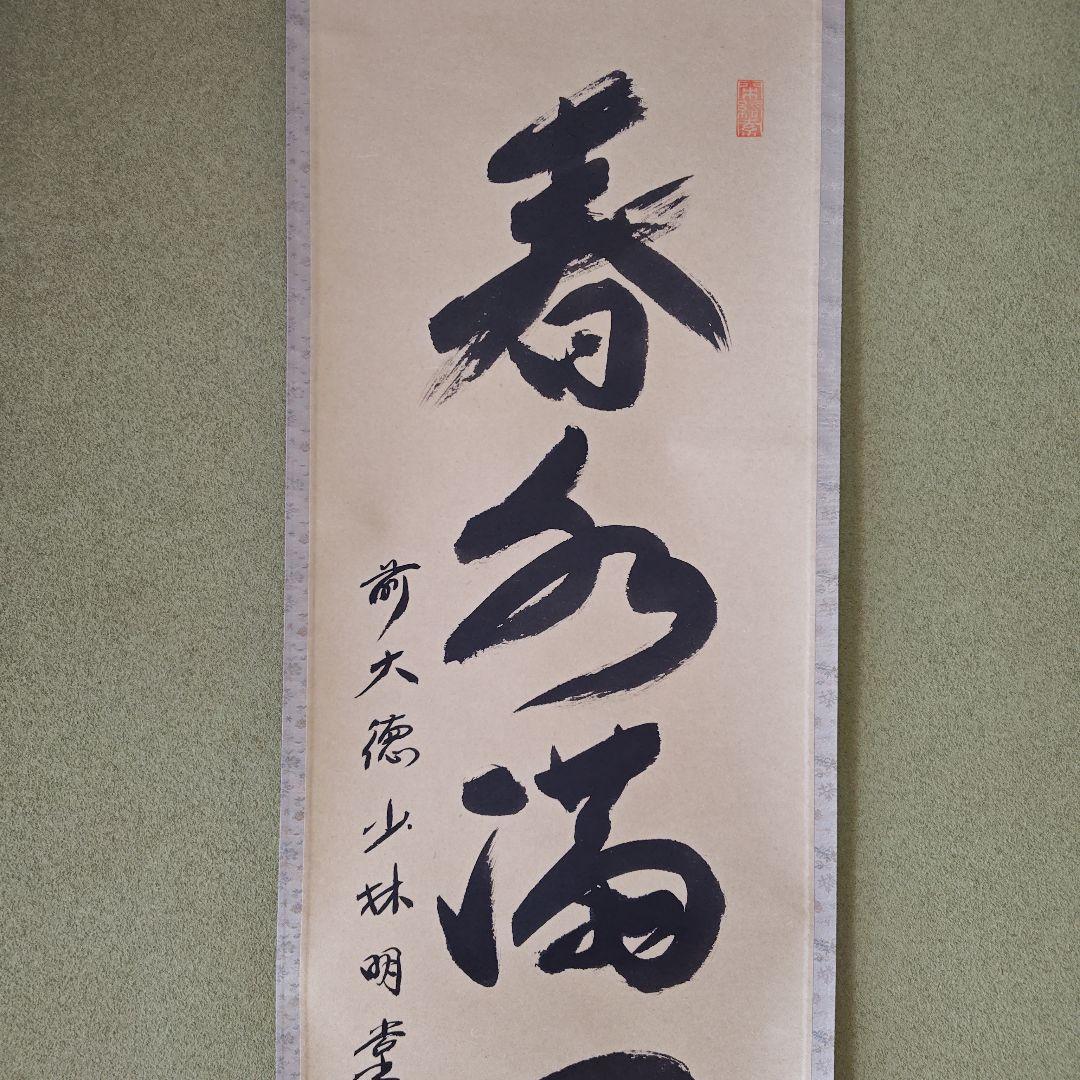 春水満
前大徳少林明堂